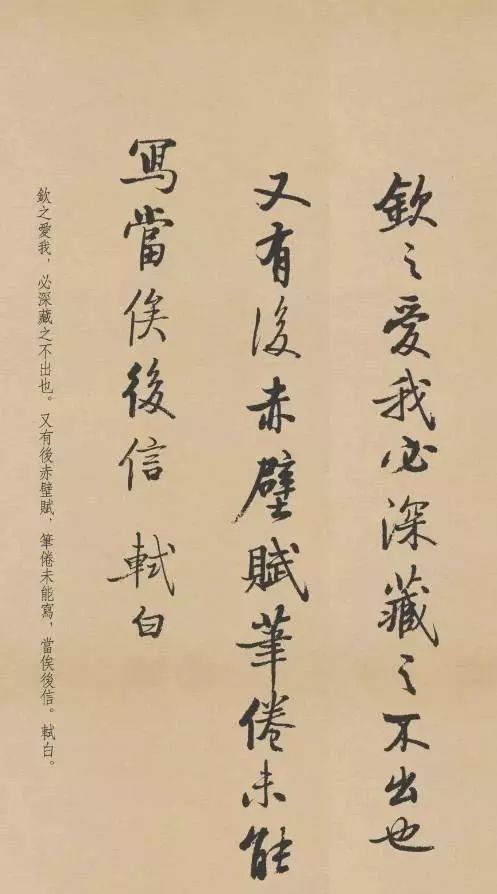 欽之愛我必深藏之不出也
又有後赤壁賦筆倦未能
寫當俟後信 軾白
欽之愛我，必深藏之不出也。又有後赤壁賦，筆倦未能寫，當俟後信。軾白。